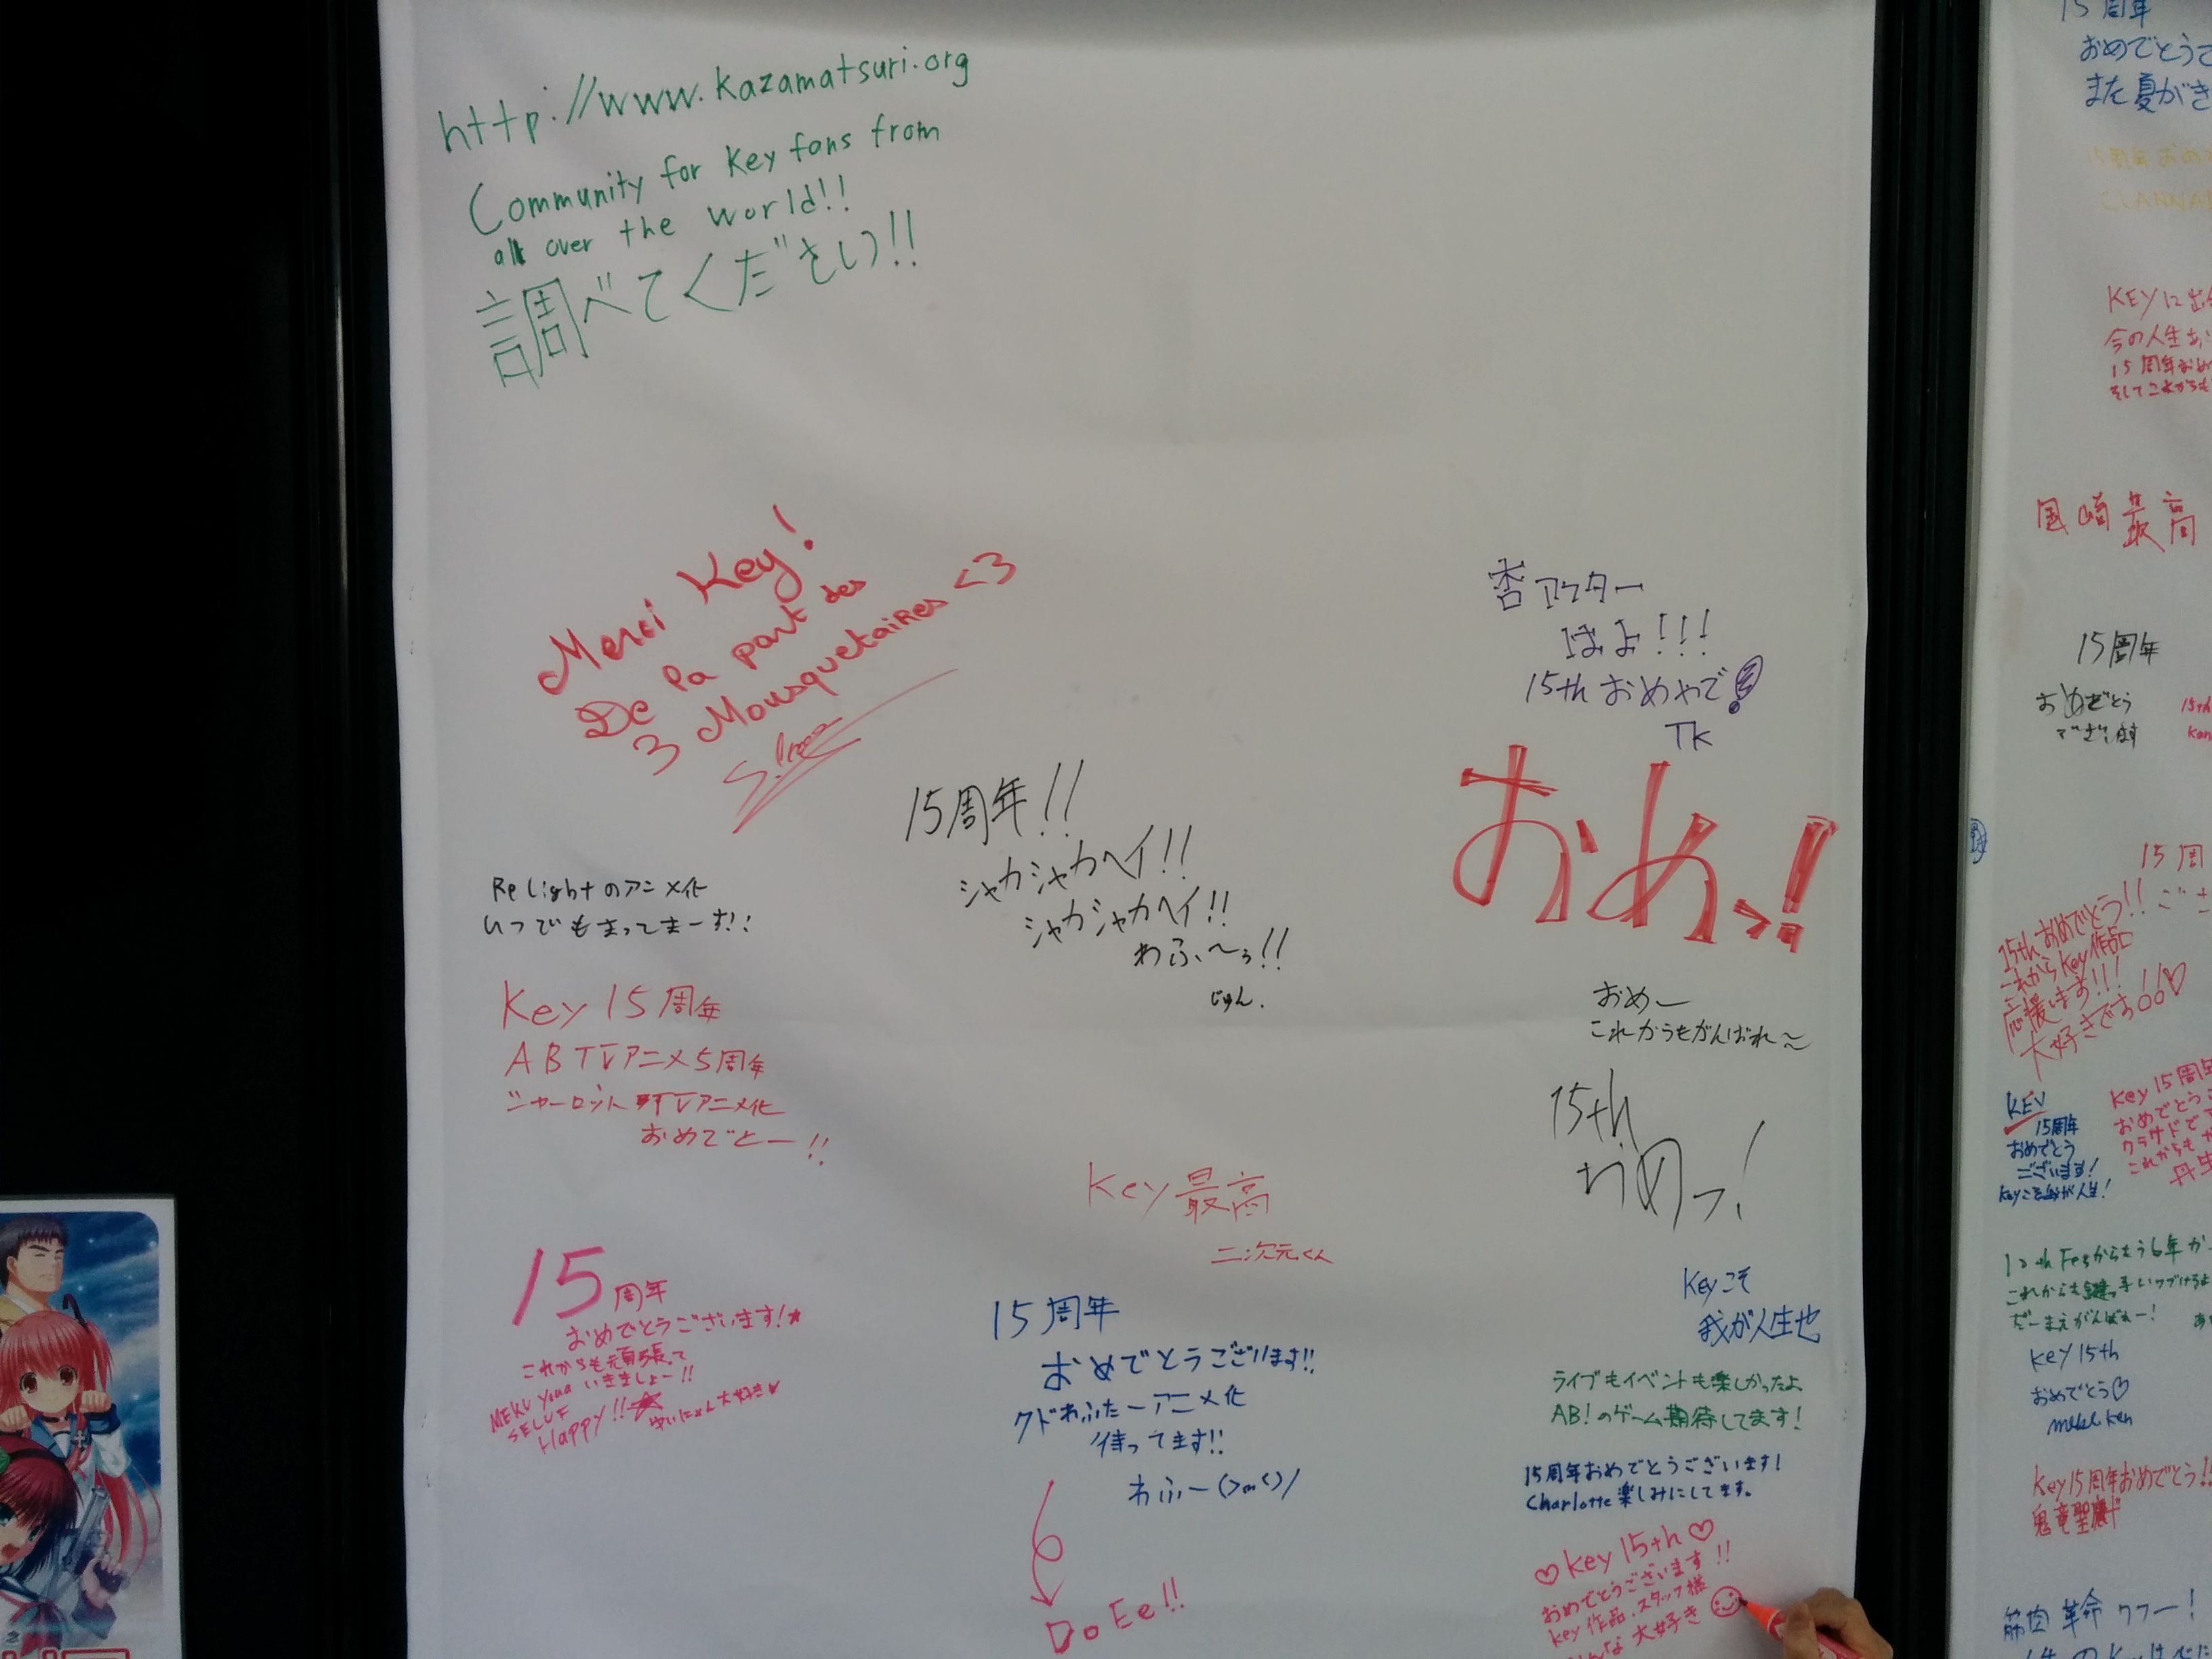 http://www.kazamatsuri.org
Community for Key fans from
all over the world!!
調べてください!!
Merci Key!
De la part des
3 Mousquetaires <3
杏アフター
はよ!!!
15th おめやで
TK
おめっ!
15周年!!
シャカシャカヘイ!!
シャカシャカヘイ!!
わふ〜っ!!
じゅん.
Re Lightのアニメ化
いつでもまってまーす!!
Key 15周年
AB TVアニメ5周年
シャーロット TVアニメ化
おめでとー!!
おめー
これからもがんばれ〜
15th
おめっ!
Key最高
二次元くん
15周年
おめでとうございます!★
これからも頑張って
いきましょー!!
Happy!!
ゆいにゃん大好き♥
15周年
おめでとうございます!!
クドわふたーアニメ化
待ってます!!
わふー(>ω<)/
DoEe!!
Keyこそ
我が人生也
ライブもイベントも楽しかったよ
AB!のゲーム期待してます!
15周年おめでとうございます!
Charlotte楽しみにしてます。
♡Key 15th♡
おめでとうございます!!
key作品.スタッフ様
大好き
15周年
おめでとう
また夏が
15周年
KEYに
今の人生
15周年
最高
15周年
おめでとう
ございます
15周
15th おめでとう!!
これからもKey作品
応援します!!!
大好きです
KEY
15周年
おめでとう
ございます!
Keyこそ我が人生!
Key 15周年
おめでとう
これからも
10th Fesからもう6年か
これからも
だーまえがんばれー!
Key 15th
おめでとう♡
Key15周年おめでとう!!
筋肉革命